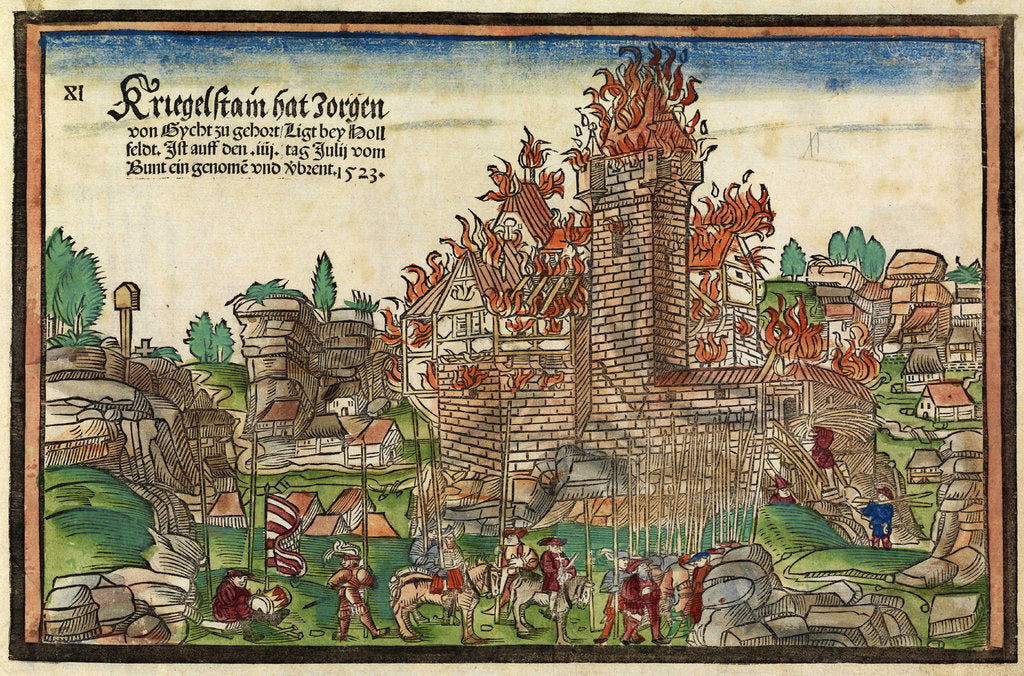 XI
Kriegelstain hat Jorgen
von Gycht zu gehort/Ligt bey Holl
feldt. Ist auff den .iiij. tag Julij vom
Bunt ein genomē vnd v̈brent. 1523.
11